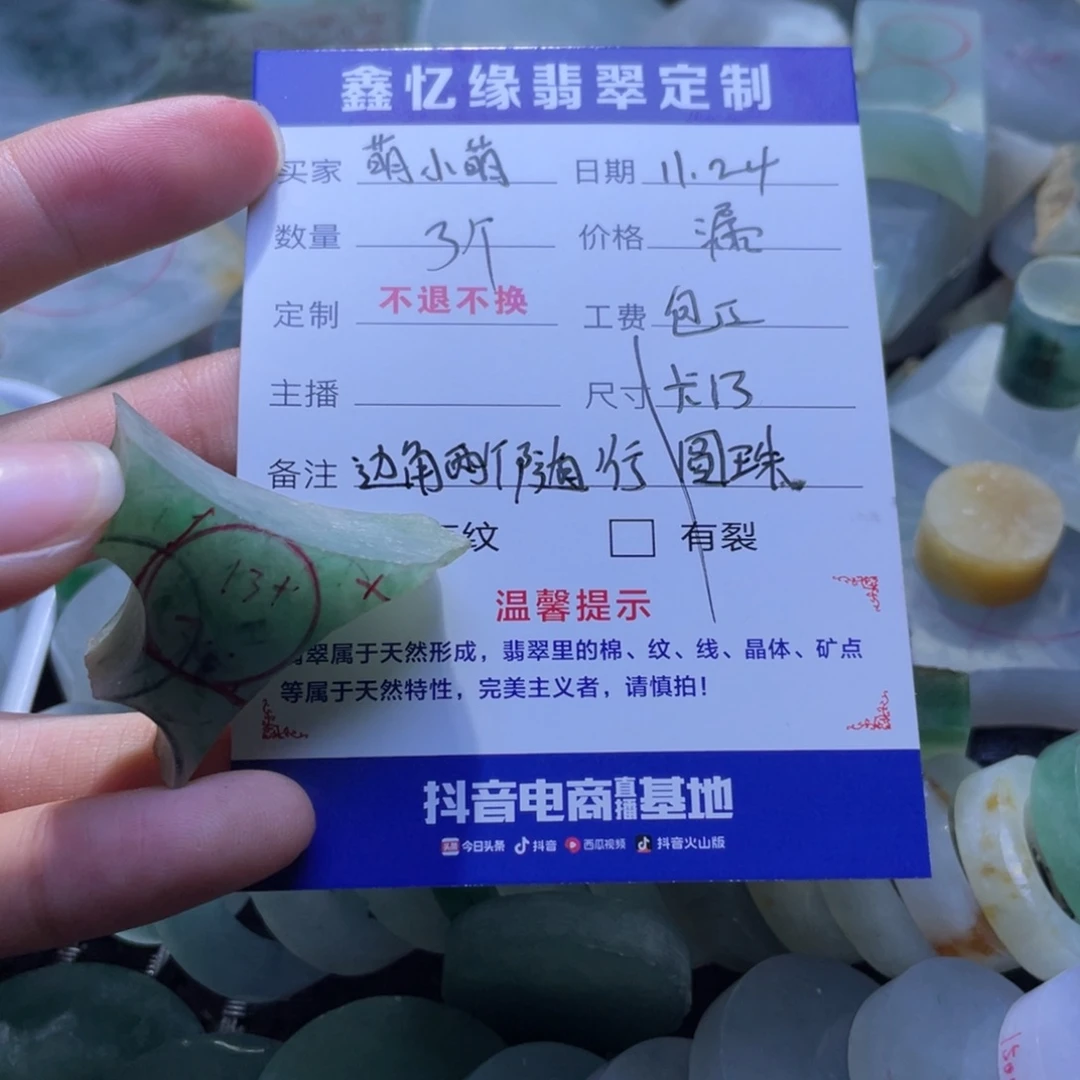 鑫忆缘翡翠定制
买家 萌小萌 日期 11.24
数量 3个 价格 漏
定制 不退不换 工费 包工
主播 尺寸 卡13
备注 边角两个随行 圆珠
纹 有裂
温馨提示
翡翠属于天然形成，翡翠里的棉、纹、线、晶体、矿点
等属于天然特性，完美主义者，请慎拍！
抖音电商直播基地
头条 今日头条 抖音 西瓜视频 抖音火山版
13+ x